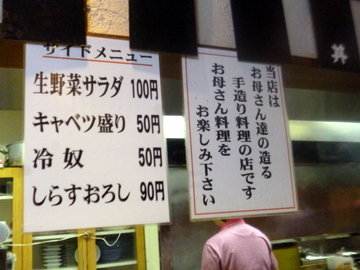 サイドメニュー
生野菜サラダ 100円
キャベツ盛り 50円
冷奴 50円
しらすおろし 90円
当店は
お母さん達の造る
手造り料理の店です
お母さん料理を
お楽しみ下さい
丼